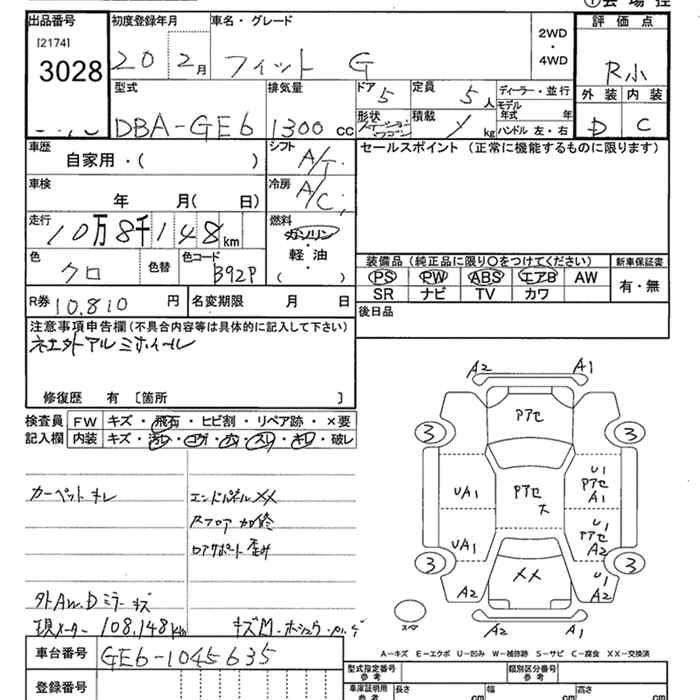 ①会場控
出品番号 初度登録年月 車名・グレード 2WD・4WD 評価点
[2174]
3028 20 2月 フィット G R小
型式 排気量 ドア 5 定員 5人 ディーラー・並行 外装 内装
モデル年式 年
DBA-GE6 1300cc 形状 積載 kg ハンドル 左・右 D C
車歴 自家用・( ) シフト A/T セールスポイント (正常に機能するものに限ります)
車検 年 月( 日) 冷房 A/C
走行 10万8千148km 燃料 ガソリン 軽・油 ( )
色 クロ 色替 色コード B92P
装備品 (純正品に限り○をつけてください) 新車保証書
PS PW ABS エアB AW 有・無
SR ナビ TV カワ
R券 10.810 円 名変期限 月 日
後日品
注意事項申告欄(不具合内容等は具体的に記入して下さい)
社外アルミホイール
修復歴 有 〔箇所 〕
検査員 FW キズ・飛石・ヒビ割・リペア跡・×要
記入欄 内装 キズ・汚レ・コゲ・穴・スレ・キレ・破レ
カーペットキレ
エンドパネルXX
Rフロア加修
ロアサポート歪み
外AW.Dミラーキズ
現メーター 108,148km
A2 A1
Pアセ
3 3
UA1 Pアセ U1 Pアセ A1
UA1 U1 Pアセ A2
3 3
A2 XX U1 A2
スペア A2 A1
A-キズ E-エクボ U-凹み W-補修跡 S-サビ C-腐食 XX-交換済
車台番号 GE6-1045635
型式指定番号 参考 類別区分番号 参考
登録番号
車庫証明用 参考 長さ cm 幅 cm 高さ cm